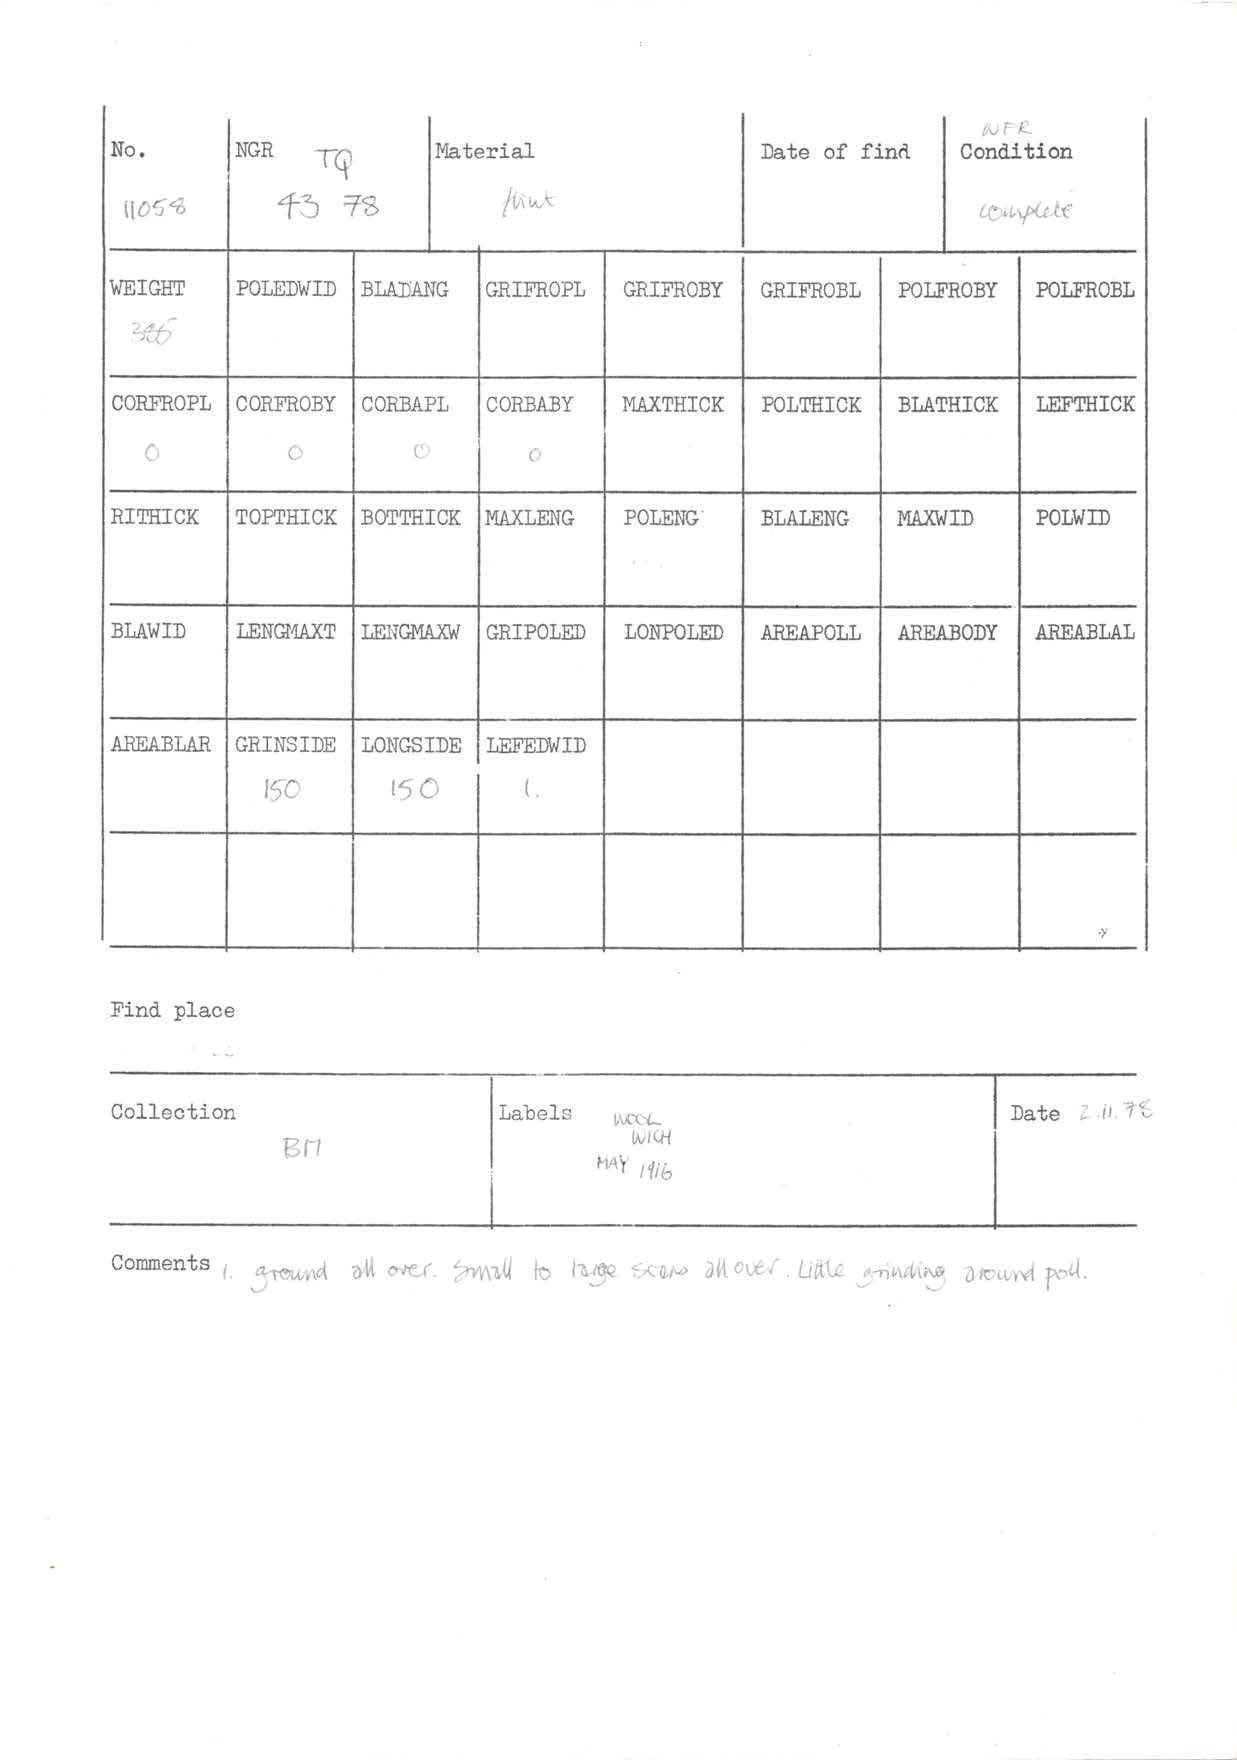 WFR
No. NGR TQ Material Date of find Condition
11058 43 78 flint complete
WEIGHT POLEDWID BLADANG GRIFROPL GRIFROBY GRIFROBL POLFROBY POLFROBL
CORFROPL CORFROBY CORBAPL CORBABY MAXTHICK POLTHICK BLATHICK LEFTHICK
0 0 0 0
RITHICK TOPTHICK BOTTHICK MAXLENG POLENG BLALENG MAXWID POLWID
BLAWID LENGMAXT LENGMAXW GRIPOLED LONPOLED AREAPOLL AREABODY AREABLAL
AREABLAR GRINSIDE LONGSIDE LEFEDWID
150 150 1.
Find place
Collection Labels WOOL Date 2.11.78
BM WICH
MAY 1916
Comments 1. ground all over. Small to large scars all over. Little grinding around poll.